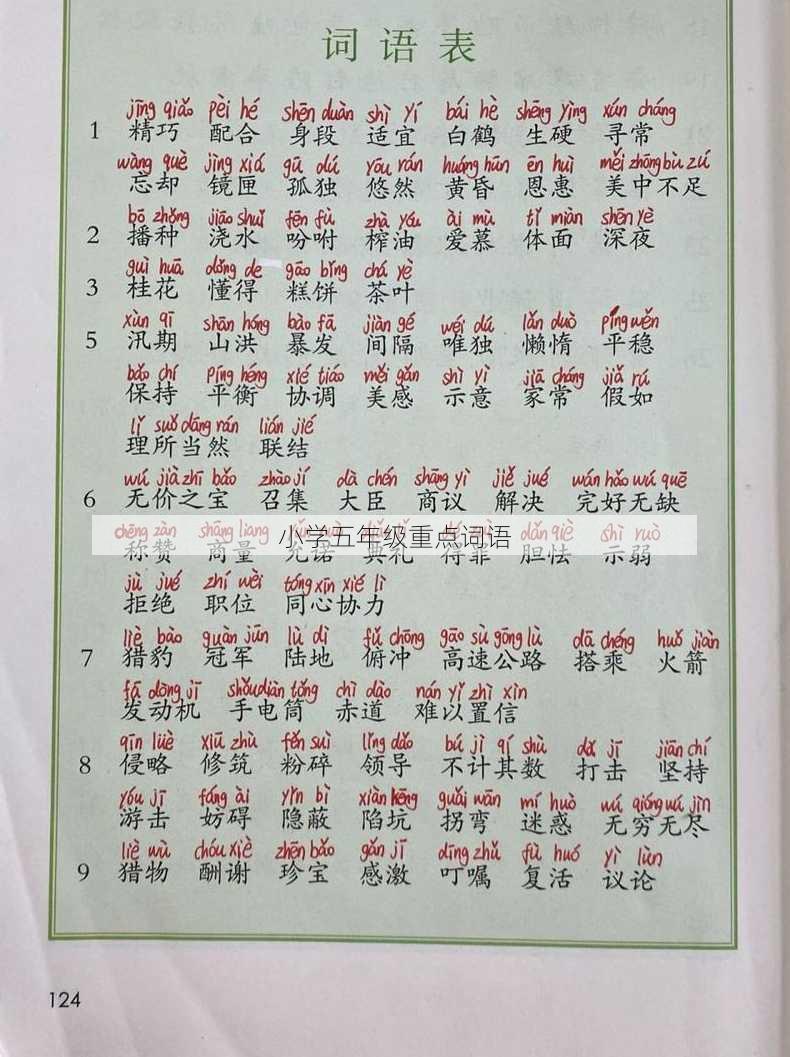 词语表
jīng qiǎo pèi hé shēn duàn shì yí bái hè shēng yìng xún cháng
1 精巧 配合 身段 适宜 白鹤 生硬 寻常
wàng què jìng xiá gū dú yōu rán huáng hūn ēn huì měi zhōng bù zú
忘却 镜匣 孤独 悠然 黄昏 恩惠 美中不足
bō zhǒng jiāo shuǐ fēn fù zhà yóu ài mù tǐ miàn shēn yè
2 播种 浇水 吩咐 榨油 爱慕 体面 深夜
guì huā dǒng de gāo bǐng chá yè
3 桂花 懂得 糕饼 茶叶
xùn qī shān hóng bào fā jiàn gé wéi dú lǎn duò píng wěn
5 汛期 山洪 暴发 间隔 唯独 懒惰 平稳
bǎo chí píng héng xié tiáo měi gǎn shì yì jiā cháng jiǎ rú
保持 平衡 协调 美感 示意 家常 假如
lǐ suǒ dāng rán lián jié
理所当然 联结
wú jià zhī bǎo zhào jí dà chén shāng yì jiě jué wán hǎo wú quē
6 无价之宝 召集 大臣 商议 解决 完好无缺
chēng zàn shāng liang dǎn qiè shì ruò
称赞 商量 允诺 典礼 得罪 胆怯 示弱
小学五年级重点词语
jù jué zhí wèi tóng xīn xié lì
拒绝 职位 同心协力
liè bào guàn jūn lù dì fǔ chōng gāo sù gōng lù dā chéng huǒ jiàn
7 猎豹 冠军 陆地 俯冲 高速公路 搭乘 火箭
fā dòng jī shǒu diàn tǒng chì dào nán yǐ zhì xìn
发动机 手电筒 赤道 难以置信
qīn lüè xiū zhù fěn suì lǐng dǎo bú jì qí shù dǎ jī jiān chí
8 侵略 修筑 粉碎 领导 不计其数 打击 坚持
yóu jī fáng ài yǐn bì xiàn kēng guǎi wān mí huò wú qióng wú jìn
游击 妨碍 隐蔽 陷坑 拐弯 迷惑 无穷无尽
liè wù chóu xiè zhēn bǎo gǎn jī dīng zhǔ fù huó yì lùn
9 猎物 酬谢 珍宝 感激 叮嘱 复活 议论
124